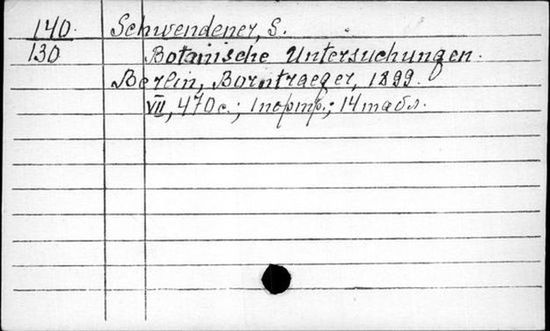 140. Schwendener, S.
130 Botanische Untersuchungen.
Berlin, Borntraeger, 1899.
VII, 470 с.; 1 портр.; 14 табл.